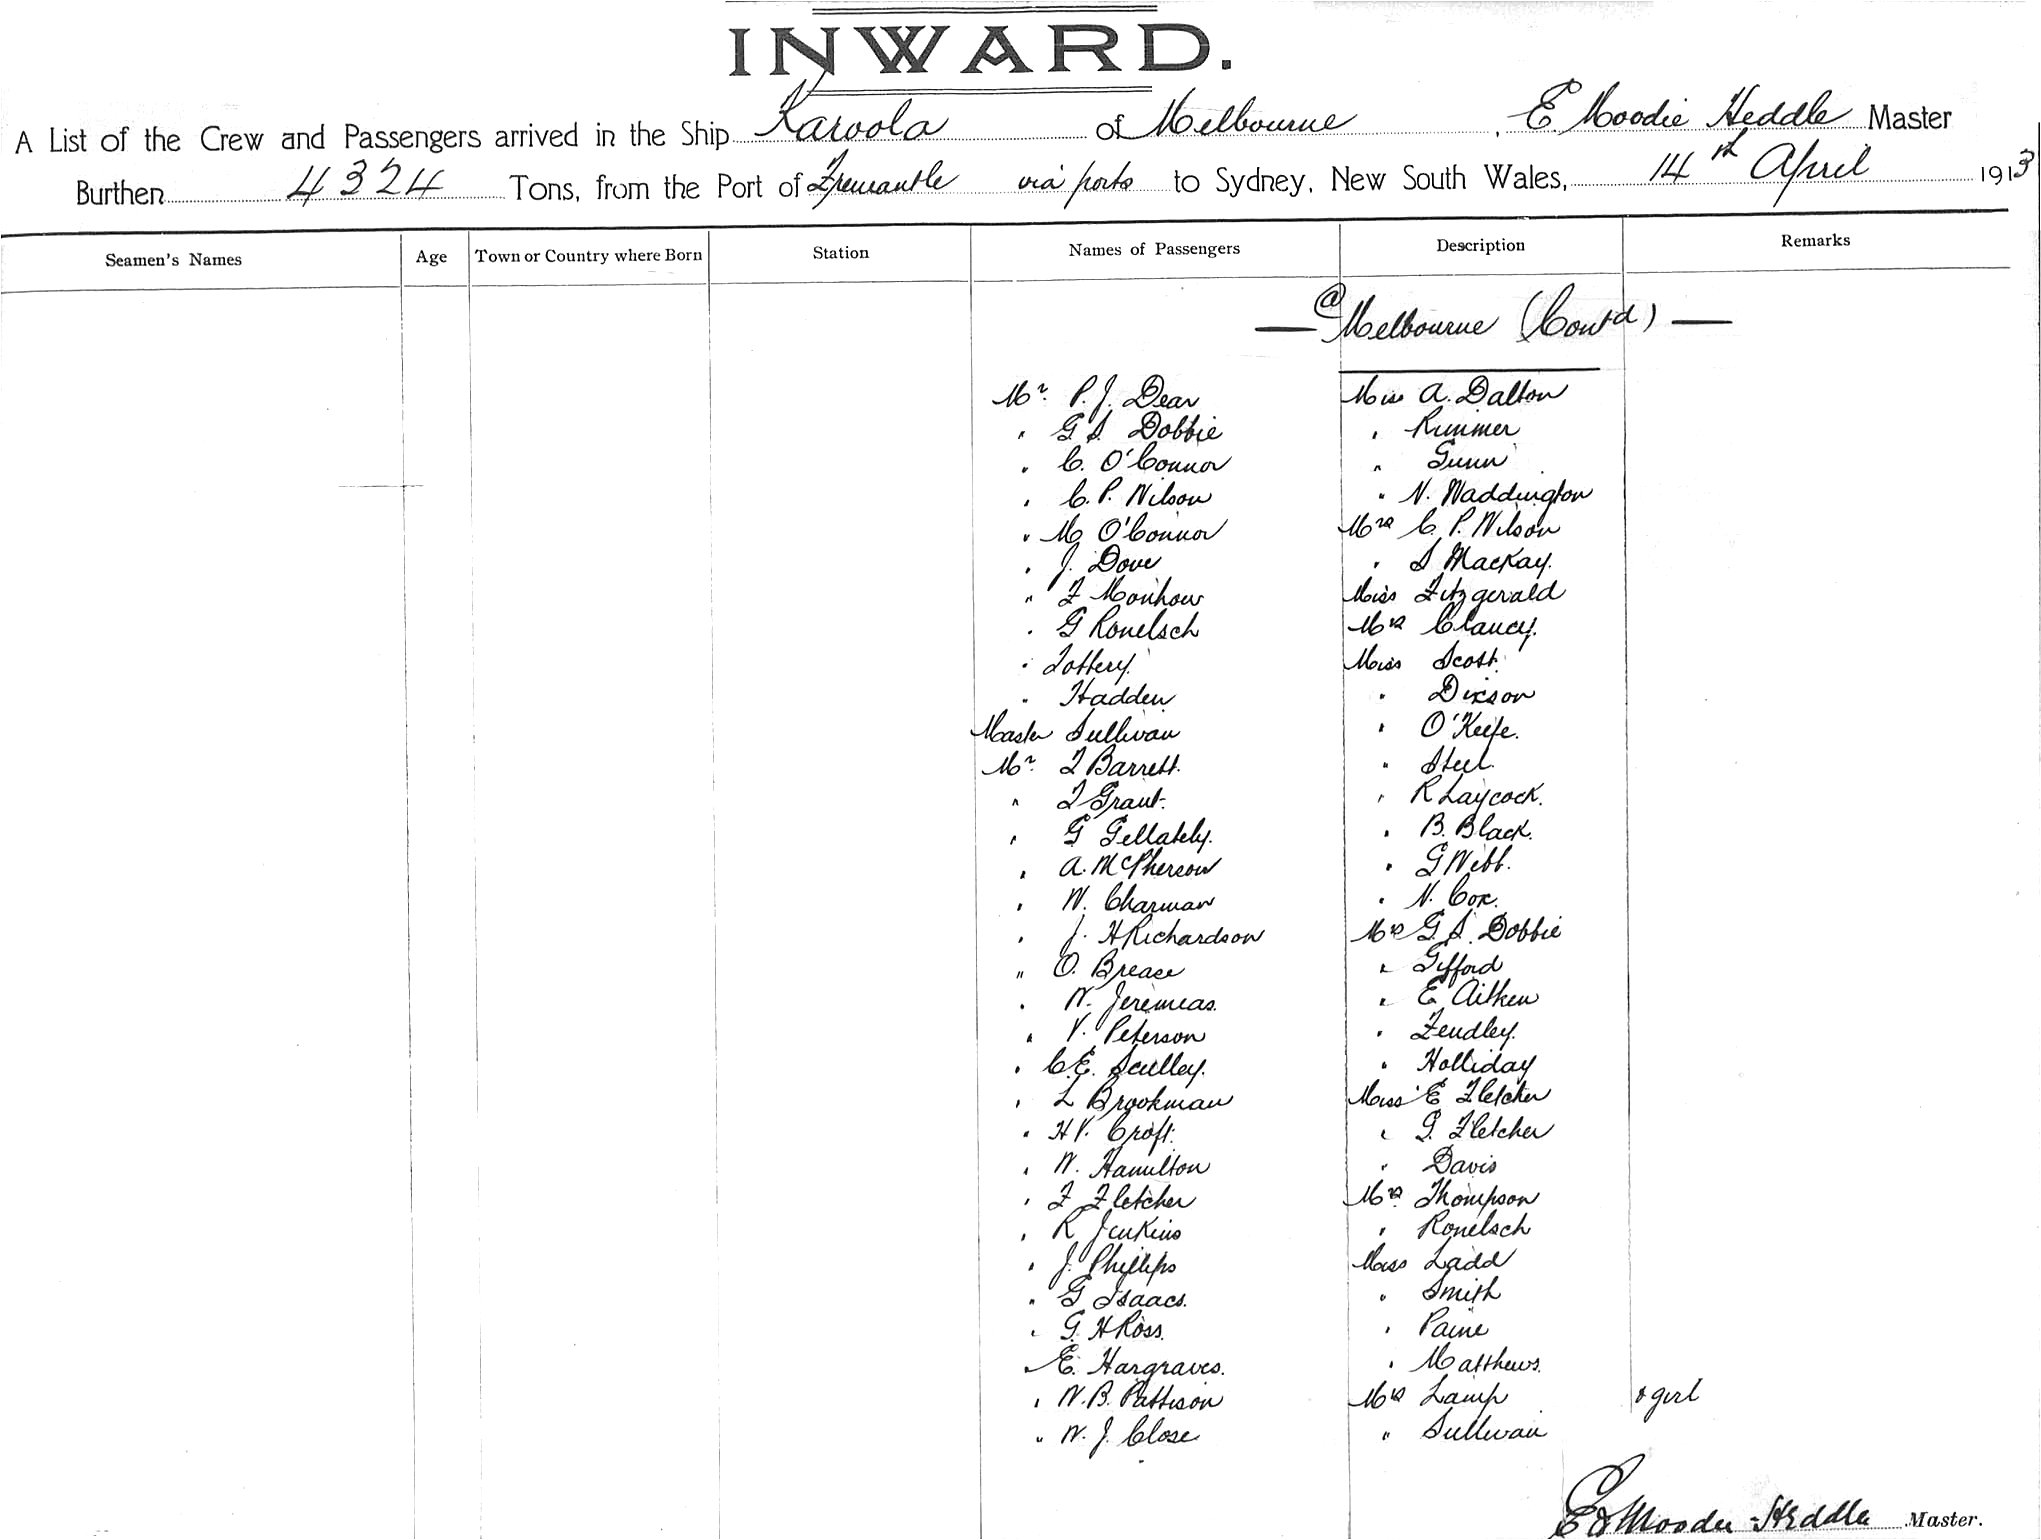 INWARD.
A List of the Crew and Passengers arrived in the Ship Karoola of Melbourne, E Moodie Heddle Master
Burthen 4324 Tons, from the Port of Fremantle via ports to Sydney, New South Wales, 14th April 1913
Seamen's Names Age Town or Country where Born Station Names of Passengers Description Remarks
— @ Melbourne (Contd) —
Mr. P. J. Dear Miss A. Dalton
" G S. Dobbie " Rimmer
" C. O'Connor " Gunn
" C. P. Wilson " N. Waddington
" M O'Connor Mrs C. P. Wilson
" J. Dove " S Mackay.
" F Monhow Miss Fitzgerald
" G Ronelsch Mrs Clancy.
" Miss Scott.
" Hadden " Dixson
Master Sullivan " O'Keefe.
Mr. T Barrett. " Steel.
" T Grant. " R Laycock.
" G Gellately. " B. Black.
" A. McPherson " G Webb.
" W. Charman " N. Cox.
" J. H Richardson Mrs G. S. Dobbie
" O. Breace " Gifford
" W. Jeremeas. " E Aitken
" V. Peterson " Fendley.
" C. E. Sculley. " Holliday
" L Brookman Miss E Fletcher
" H V. Croft. " G. Fletcher
" W. Hamilton " Davis
" F Fletcher Mrs Thompson
" R Jenkins " Ronelsch
" J. Phillips Miss Ladd
" G Isaacs. " Smith
" G. H Ross. " Paine
" E. Hargraves. " Matthews.
" W. B. Pattison Mrs Lamp & girl
" W. J. Close " Sullivan
E Moodie Heddle Master.